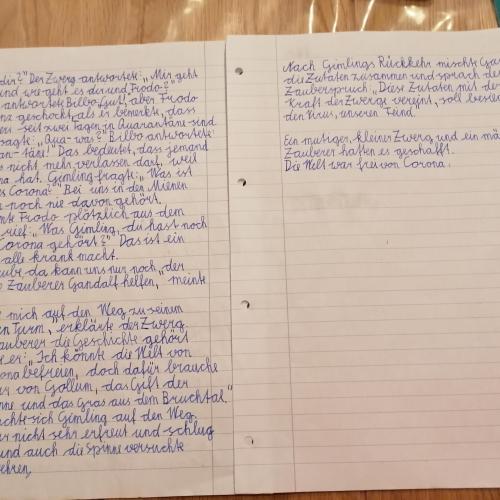 dir?" Der Zwerg antwortete: „Mir geht
und wie geht es dir und Frodo?"
antwortete Bilbo „Gut, aber Frodo
geschockt, als er bemerkte, dass
seit zwei Tagen in Quarantäne sind
sagte: „Qua-was?" Bilbo antwortete:
an-täne! Das bedeutet, dass jemand
s nicht mehr verlassen darf, weil
na hat. Gimling fragte: „Was ist
es Corona?" Bei uns in den Mienen
noch nie davon gehört.
mte Frodo plötzlich aus dem
rief: „Was Gimling, du hast noch
Corona gehört?" Das ist ein
alle krank macht.
aube da kann uns nur noch „der
Zauberer Gandalf helfen," meinte
mich auf den Weg zu seinem
en Turm," erklärte der Zwerg.
auberer die Geschichte gehört
er: „Ich könnte die Welt von
ona befreien, doch dafür brauche
ar von Gollum, das Gift der
nne und das Gras aus dem Bruchtal."
chte sich Gimling auf den Weg.
ar nicht sehr erfreut und schlug
und auch die Spinne versuchte
ehren.
Nach Gimlings Rückkehr mischte Gan
die Zutaten zusammen und sprach de
Zauberspruch: „Diese Zutaten mit de
Kraft der Zwerge vereint, soll besie
den Virus, unseren Feind."
Ein mutiger, kleiner Zwerg und ein mä
Zauberer hatten es geschafft.
Die Welt war frei von Corona.